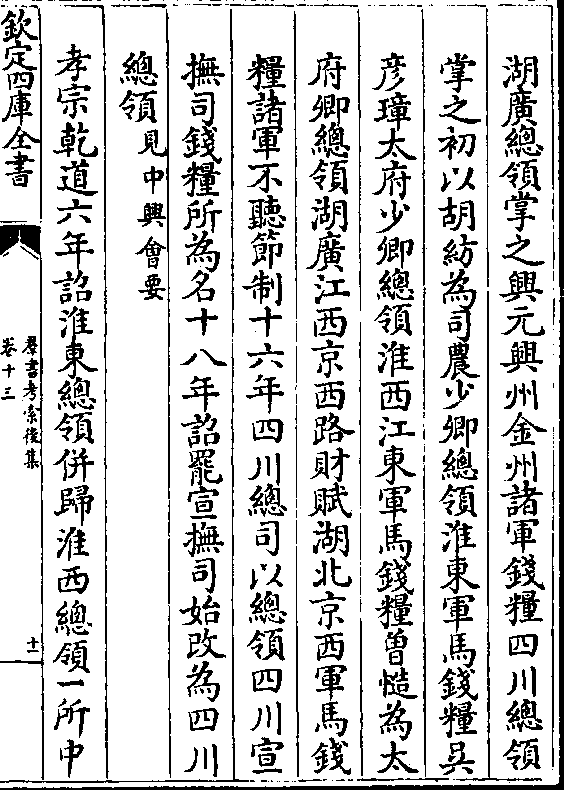 湖廣總領掌之興元興州金州諸軍錢糧四川總領
掌之初以胡紡為司農少卿總領淮東軍馬錢糧吳
彦璋太府少卿總領淮西江東軍馬錢糧曽慥為太
府卿總領湖廣江西京西路財賦湖北京西軍馬錢
糧諸軍不聽節制十六年四川總司以總領四川宣
撫司錢糧所為名十八年詔罷宣撫司始改為四川
總領見中興會要
孝宗乾道六年詔淮東總領併歸淮西總領一所中
欽定四庫全書
羣書考索後集
卷十三
十一